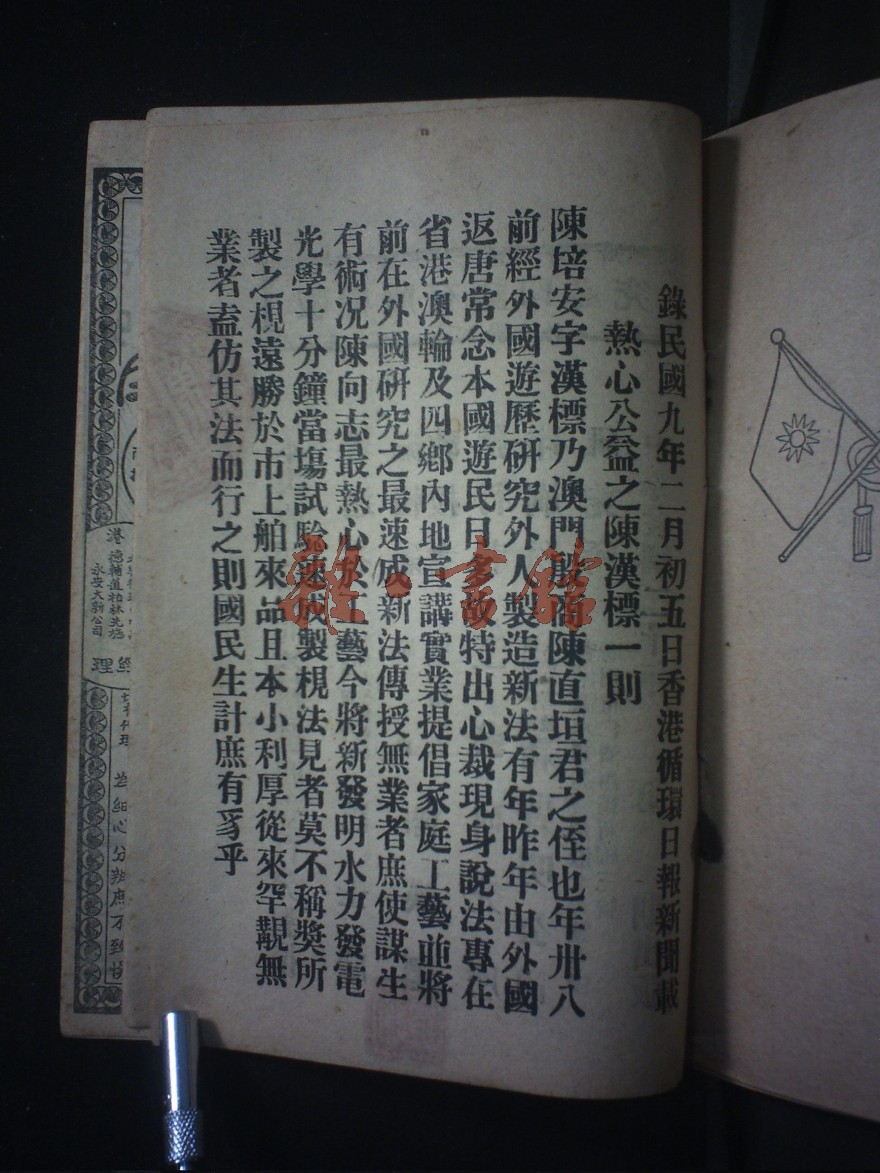 錄民國九年二月初五日香港循環日報新聞載
熱心公益之陳漢標一則
陳培安字漢標乃澳門殷商陳直垣君之侄也年卅八
前經外國遊歷研究外人製造新法有年昨年由外國
返唐常念本國遊民日多故特出心裁現身說法專在
省港澳輪及四鄉內地宣講實業提倡家庭工藝並將
前在外國研究之最速成新法傳授無業者庶使謀生
有術况陳向志最熱心於工藝今將新發明水力發電
光學十分鐘當塲試驗速成製梘法見者莫不稱獎所
製之梘遠勝於市上舶來品且本小利厚從來罕覯無
業者盍仿其法而行之則國民生計庶有豸乎
港
德輔道柏林先施
永安大新公司
經理
益細心分辨庶不致
雜·書館